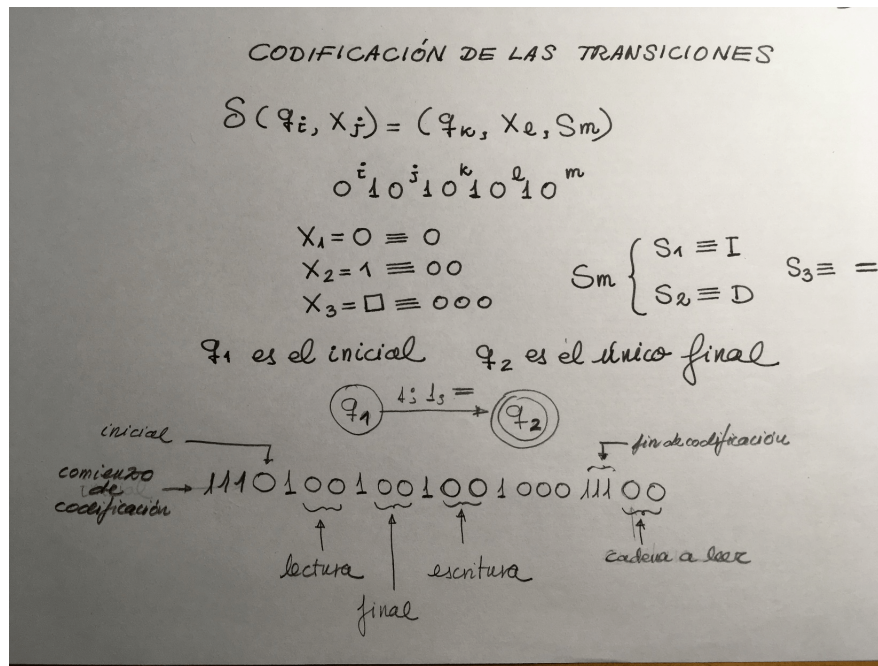 CODIFICACIÓN DE LAS TRANSICIONES
δ(qi, Xj) = (qk, Xl, Sm)
0^i 1 0^j 1 0^k 1 0^l 1 0^m
X1 = 0 ≡ 0
X2 = 1 ≡ 00
X3 = □ ≡ 000
Sm { S1 ≡ I
S2 ≡ D
S3 ≡ =
q1 es el inicial q2 es el único final
q1 1; 1, = q2
inicial
fin de codificación
comienzo
de
codificación
→ 111010010010010001110​0
lectura
final
escritura
cadena a leer